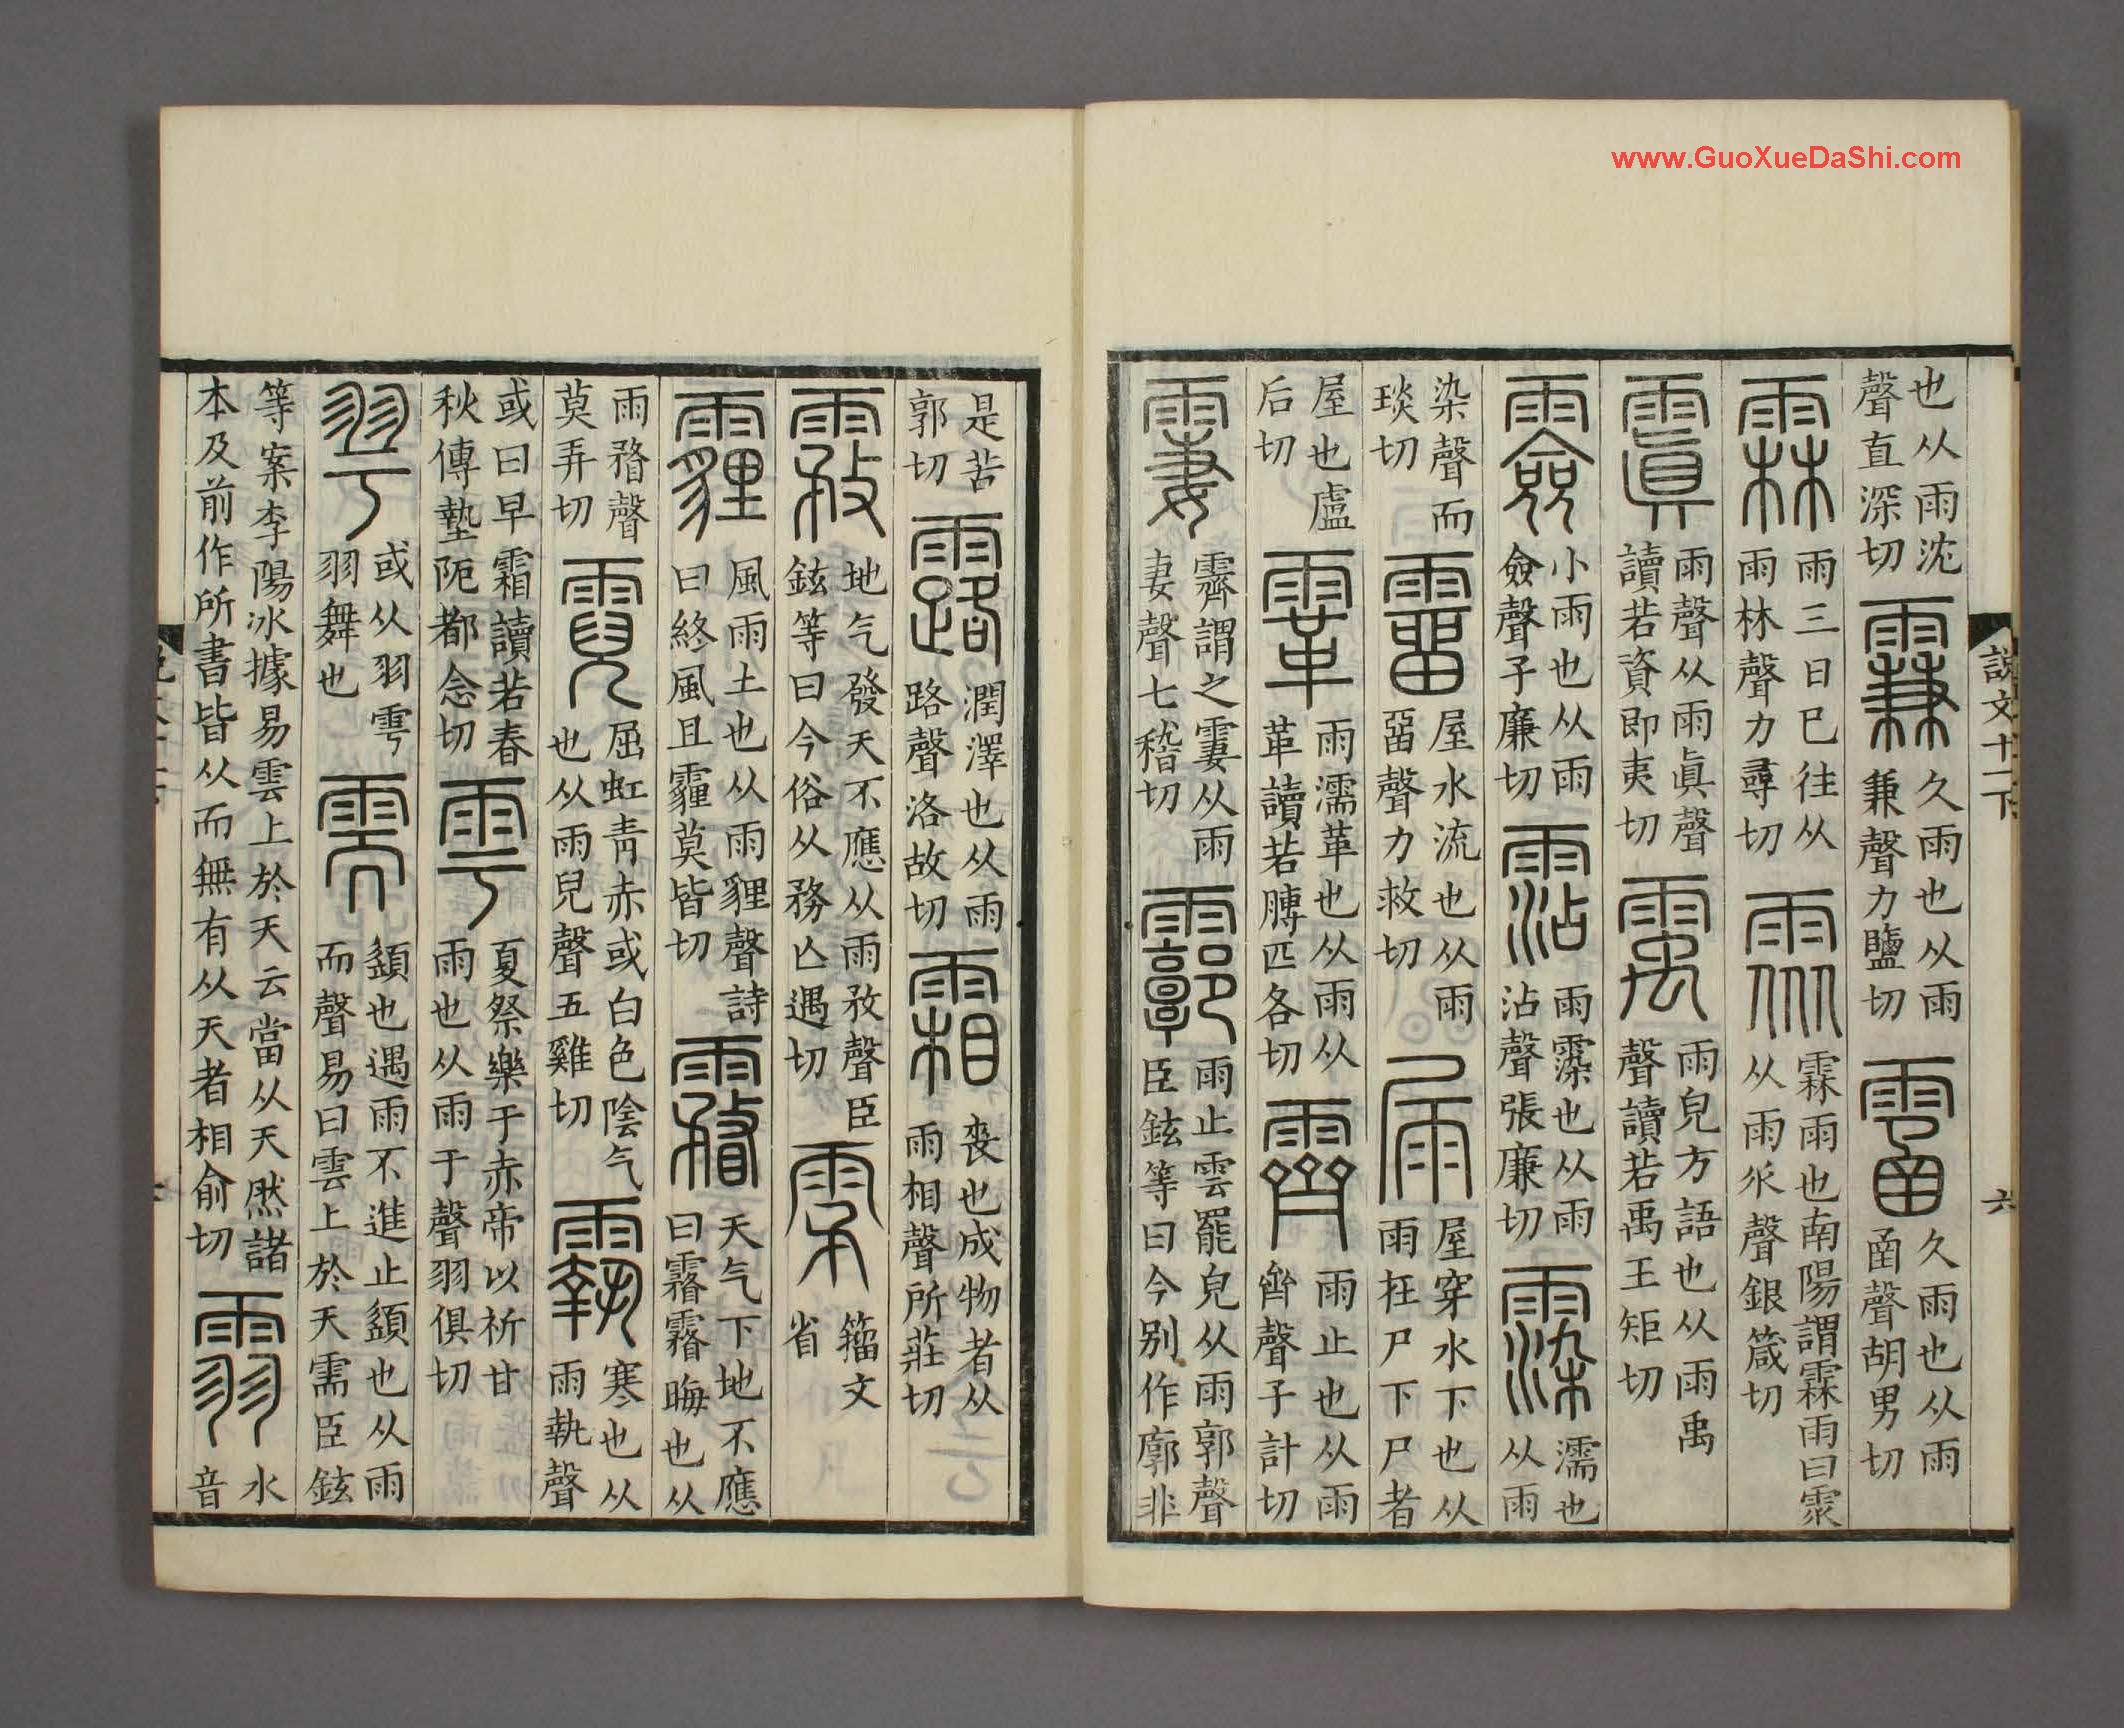 說文十一下　六
也从雨沈聲直深切　䨬　久雨也从雨兼聲力鹽切　䨡　久雨也从雨圅聲胡男切
霖　雨三日已往从雨林聲力尋切　䨙　霖雨也南陽謂霖雨曰䨙从雨㐺聲銀箴切
𩆂　雨聲从雨眞聲讀若資即夷切　䨞　雨皃方語也从雨禹聲讀若禹王矩切
𩆷　小雨也从雨僉聲子廉切　霑　雨𩃵也从雨沾聲張廉切　𩃵　濡也从雨
染聲而琰切　霤　屋水流也从雨畱聲力救切　屚　屋穿水下也从雨在尸下尸者
屋也盧后切　䨣　雨濡革也从雨从革讀若膊匹各切　霽　雨止也从雨齊聲子計切
霋　霽謂之霋从雨妻聲七稽切　霩　雨止雲罷皃从雨郭聲臣鉉等曰今别作廓非
是苦郭切　露　潤澤也从雨路聲洛故切　霜　喪也成物者从雨相聲所莊切
霚　地气發天不應从雨敄聲臣鉉等曰今俗从務亾遇切　雺　籒文省
霾　風雨土也从雨貍聲詩曰終風且霾莫皆切　霿　天气下地不應曰霿霿晦也从
雨瞀聲莫弄切　霓　屈虹青赤或白色陰气也从雨兒聲五雞切　霸　寒也从雨執聲
或曰早霜讀若春秋傳墊阨都念切　雩　夏祭樂于赤帝以祈甘雨也从雨于聲羽俱切
𦏻　或从羽雩羽舞也　需　䇓也遇雨不進止䇓也从雨而聲易曰雲上於天需臣鉉
等案李陽冰據易雲上於天云當从天然諸本及前作所書皆从而無有从天者相俞切　䨒　水音
www.GuoXueDaShi.com